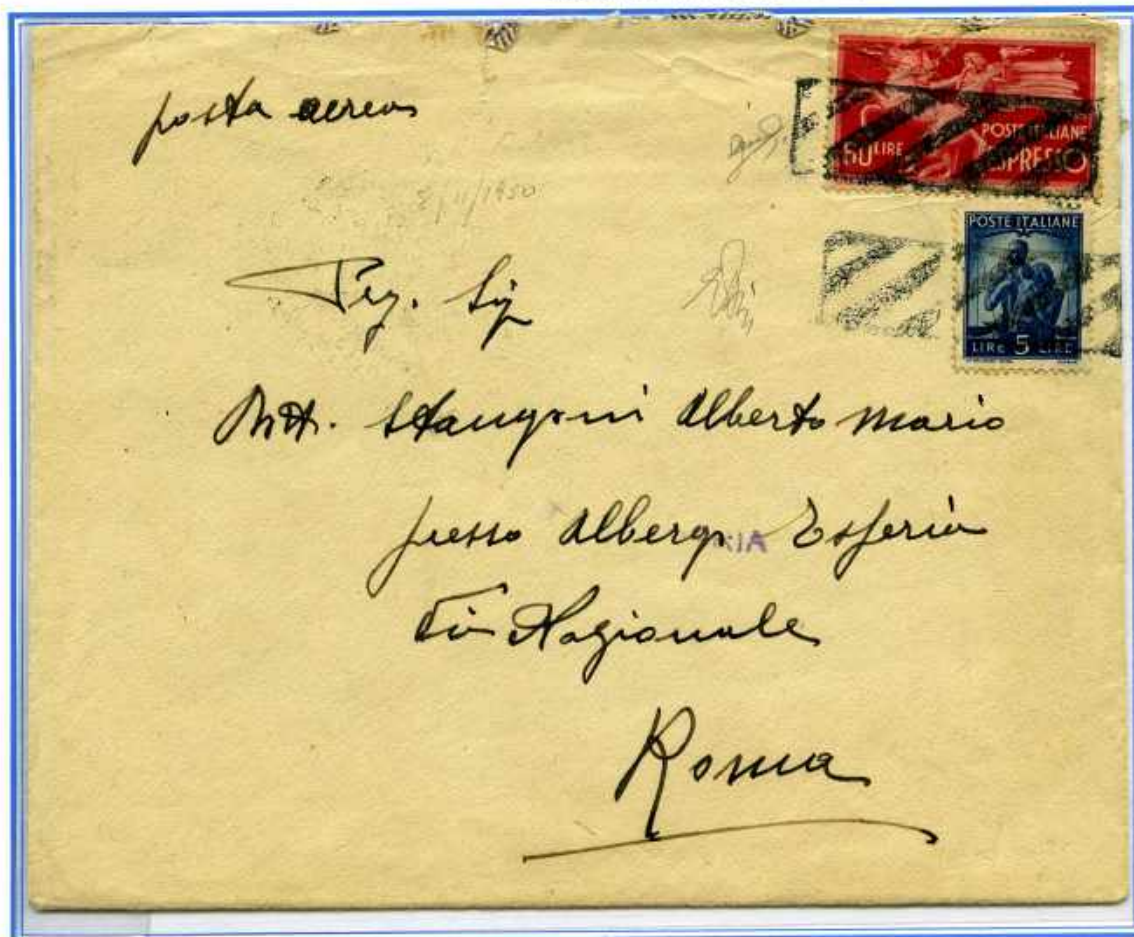 posta aerea
60 LIRE
POSTE ITALIANE
ESPRESSO
2/11/1950
POSTE ITALIANE
LIRE 5 LIRE
Preg. Sig
Dott. Stangoni Alberto Mario
presso Albergo Esperia
Via Nazionale
Roma